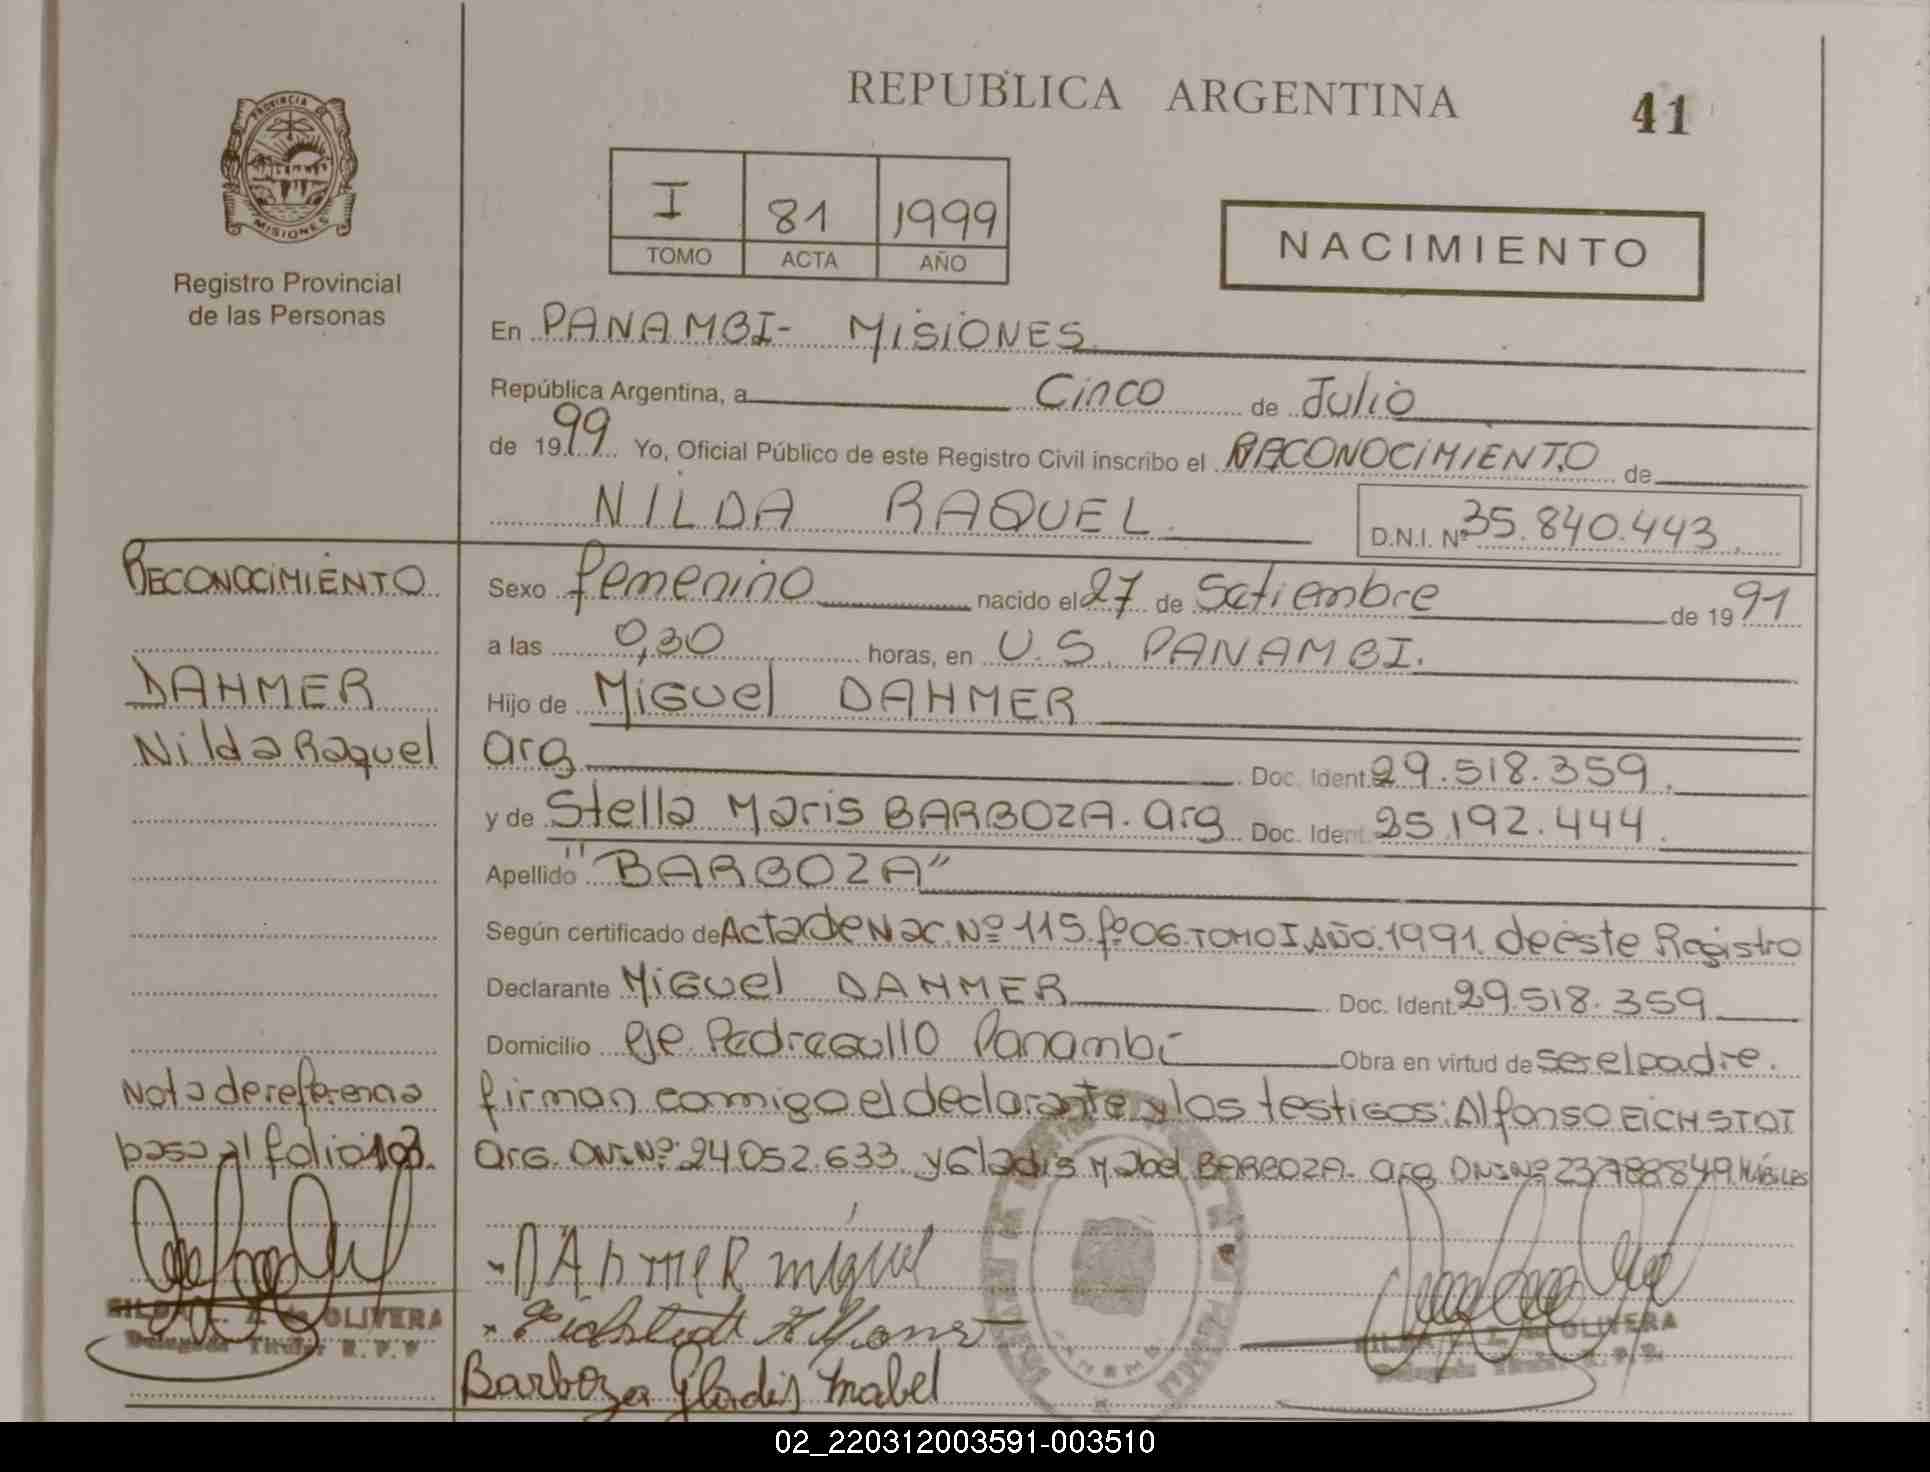 REPUBLICA ARGENTINA
41
PROVINCIA DE
MISIONES
Registro Provincial
de las Personas
I 81 1999
TOMO ACTA AÑO
NACIMIENTO
En PANAMBI- MISIONES
República Argentina, a Cinco de Julio
de 1999 Yo, Oficial Público de este Registro Civil inscribo el RECONOCIMIENTO de
NILDA RAQUEL D.N.I. Nº 35.840.443.
RECONOCIMIENTO
DAHMER
Nilda Raquel
Sexo femenino nacido el 27 de Setiembre de 1991
a las 0,30 horas, en U.S. PANAMBI.
Hijo de Miguel DAHMER
arg Doc. Ident. 29.518.359.
y de Stella Maris BARBOZA. arg Doc. Ident. 25.192.444.
Apellido "BARBOZA"
Según certificado de Acta de Nac. Nº 115. fº 06. TOMO I. AÑO. 1991. de este Registro
Declarante Miguel DAHMER Doc. Ident. 29.518.359
Domicilio Pje Pedregullo Panambí Obra en virtud de ser el padre.
Nota de referencia
pasa al folio 103.
firman conmigo el declarante y los testigos: Alfonso EICHSTDT
Arg. DNI Nº 24052.633 y Gladis Mabel BARBOZA. arg DNI Nº 23788849. HÁBILES
DAhMER miguel
Eichstadt Alfonso
Barboza Gladis Mabel
OLIVERA
Delegada Titular R.P.P
OLIVERA
Delegada Titular R.P.P.
02_220312003591-003510